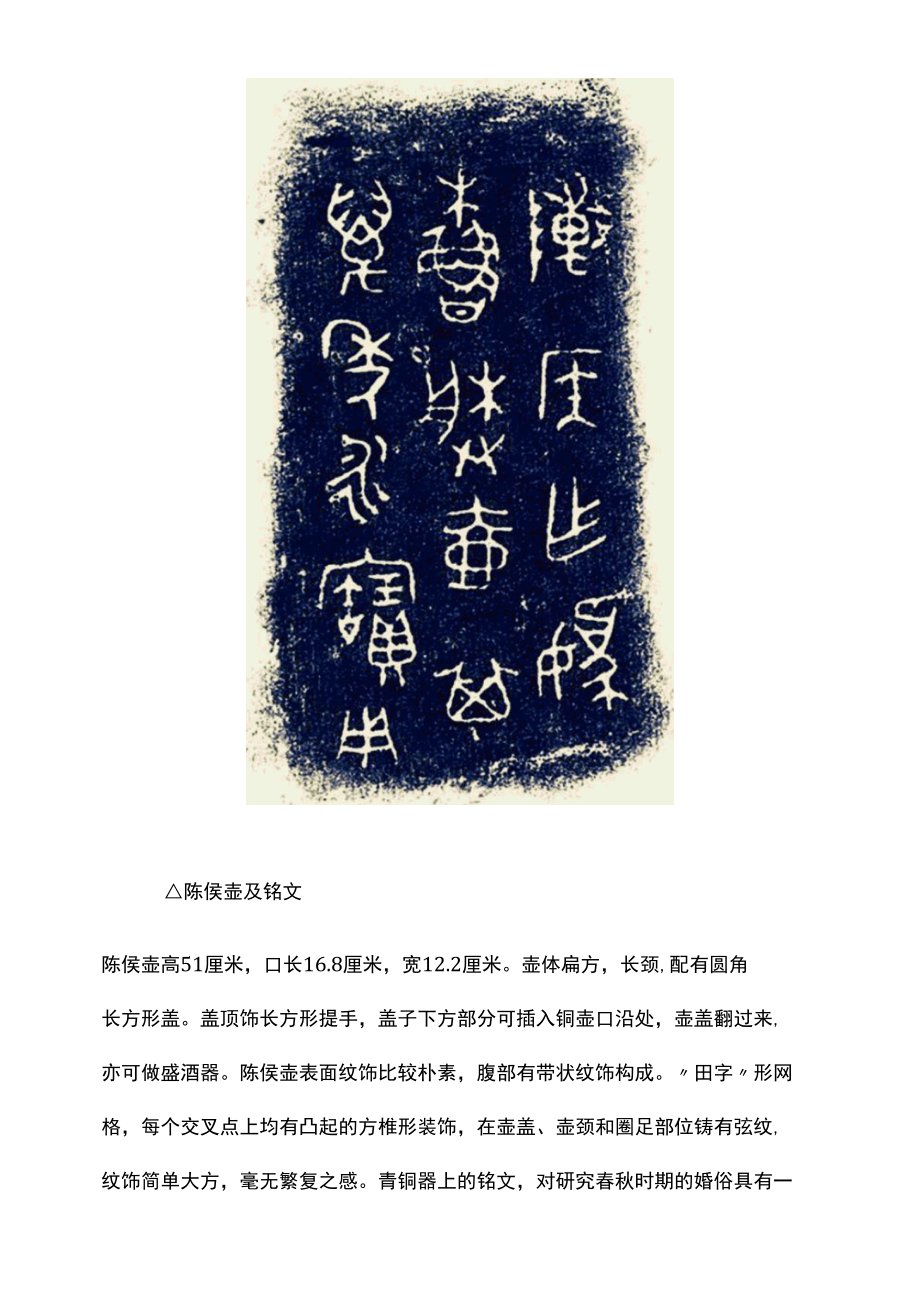 敶侯乍媯
櫓壺其
萬年永寶用
△陈侯壶及铭文
陈侯壶高51厘米，口长16.8厘米，宽12.2厘米。壶体扁方，长颈,配有圆角
长方形盖。盖顶饰长方形提手，盖子下方部分可插入铜壶口沿处，壶盖翻过来,
亦可做盛酒器。陈侯壶表面纹饰比较朴素，腹部有带状纹饰构成。〃田字〃形网
格，每个交叉点上均有凸起的方椎形装饰，在壶盖、壶颈和圈足部位铸有弦纹,
纹饰简单大方，毫无繁复之感。青铜器上的铭文，对研究春秋时期的婚俗具有一